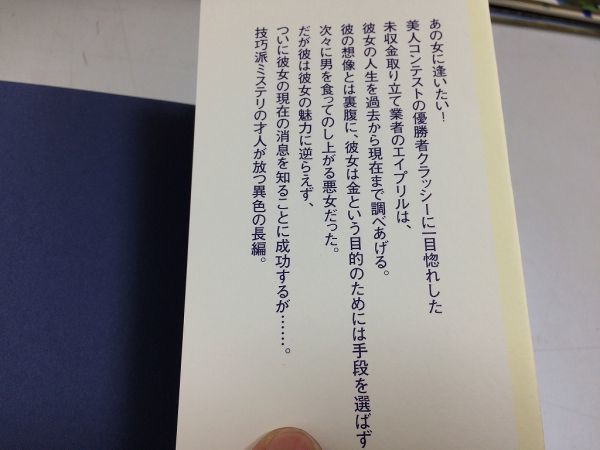 あの女に逢いたい！
美人コンテストの優勝者クラッシーに一目惚れした
未収金取り立て業者のエイプリルは、
彼女の人生を過去から現在まで調べあげる。
彼の想像とは裏腹に、彼女は金という目的のためには手段を選ばず
次々に男を食ってのし上がる悪女だった。
だが彼は彼女の魅力に逆らえず、
ついに彼女の現在の消息を知ることに成功するが……。
技巧派ミステリの才人が放つ異色の長編。